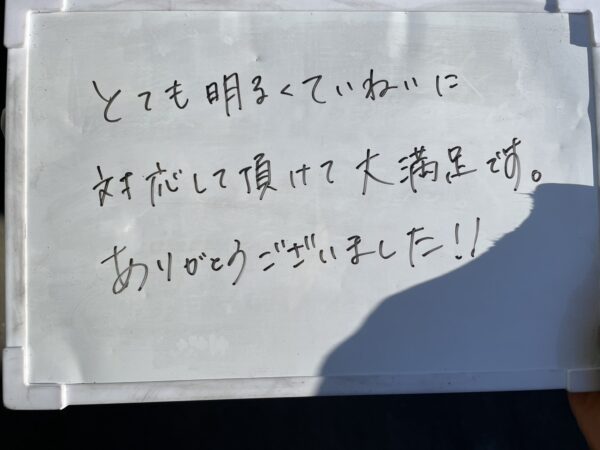 とても明るくていねいに
対応して頂けて大満足です。
ありがとうございました!!